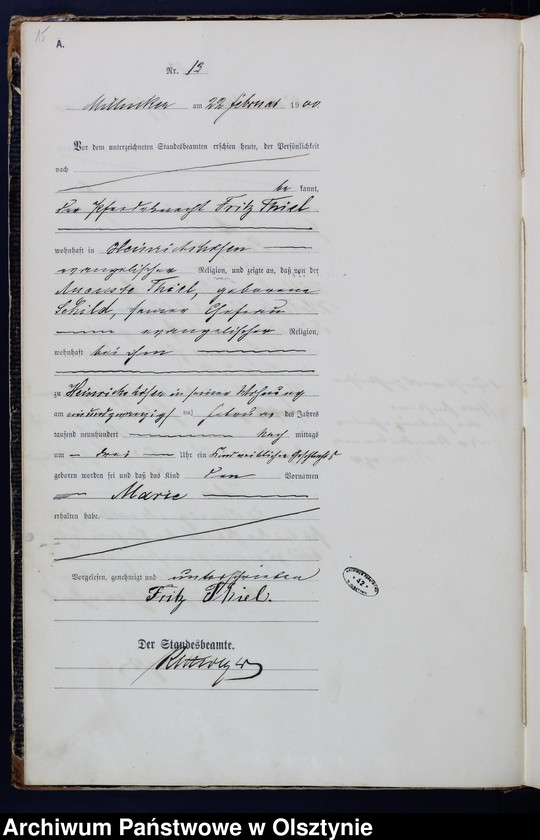 15
A.
Nr. 13
am 22 Februar 1900
Vor dem unterzeichneten Standesbeamten erschien heute, der Persönlichkeit
nach
be kannt,
der Pferdeknecht Fritz Thiel
wohnhaft in Heinrichshöfen
evangelischer Religion, und zeigte an, daß von der
Auguste Thiel, geborene
Schild, seiner Ehefrau
evangelischer Religion,
wohnhaft bei ihm
zu Heinrichshöfen in seiner Wohnung
am einundzwanzigsten Februar des Jahres
tausend neunhundert Nach mittags
um drei Uhr ein Kind weiblichen Geschlechts
geboren worden sei und daß das Kind den Vornamen
Marie
erhalten habe.
Vorgelesen, genehmigt und unterschrieben
Fritz Thiel.
Der Standesbeamte.
Archiwum Państwowe w Olsztynie